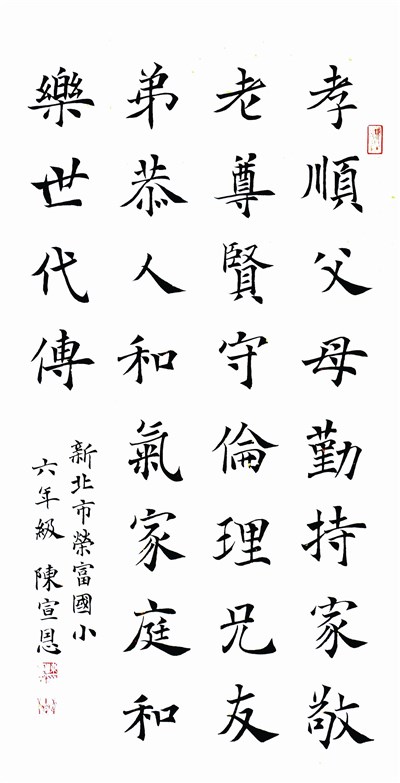 孝順父母勤持家敬
老尊賢守倫理兄友
弟恭人和氣家庭和
樂世代傳
新北市榮富國小
六年級 陳宣恩